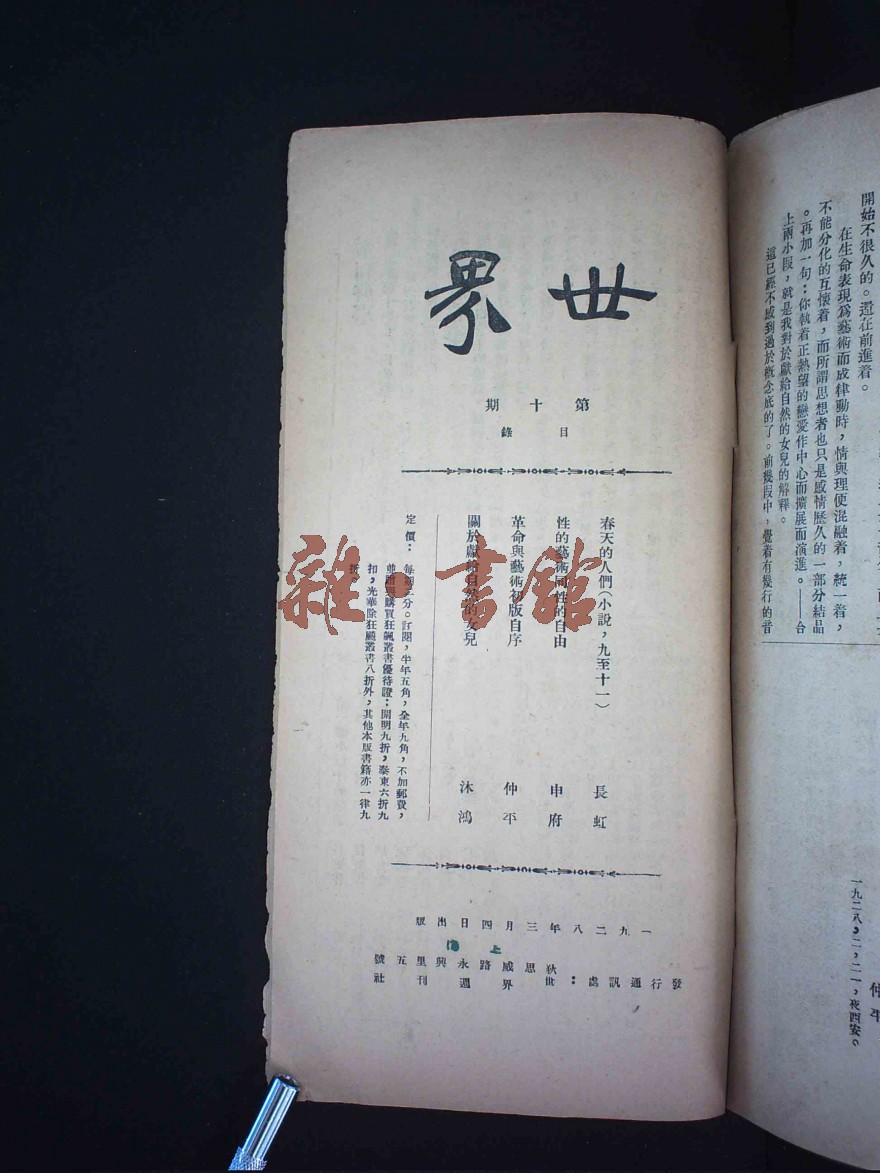 世界
第十期
目錄
春天的人們(小說,九至十一) 長虹
性的藝術與性的自由 申府
革命與藝術初版自序 仲平
關於獻給自然的女兒 沐鴻
定價:每期二分。訂閱,半年五角,全年九角,不加郵費,
並贈購買狂飆叢書優待證:開明九折,泰東六折九
扣,光華除狂飆叢書八折外,其他本版書籍亦一律九
折。
一九二八年三月四日出版
上海
發行通訊處:
狄思威路永興里五號
世界週刊社
雜·書館
開始不很久的。還在前進着。
在生命表現為藝術而成律動時,情與理便混融着,統一着,
不能分化的互懷着,而所謂思想者也只是感情歷久的一部分結品
。再加一句:你執着正熱望的戀愛作中心而擴展而演進。——台
上兩小段,就是我對於獻給自然的女兒的解釋。
這已經不感到過於概念底的了。前幾段中,覺着有幾行的音
仲平
一九二八,二,二一,夜西安。